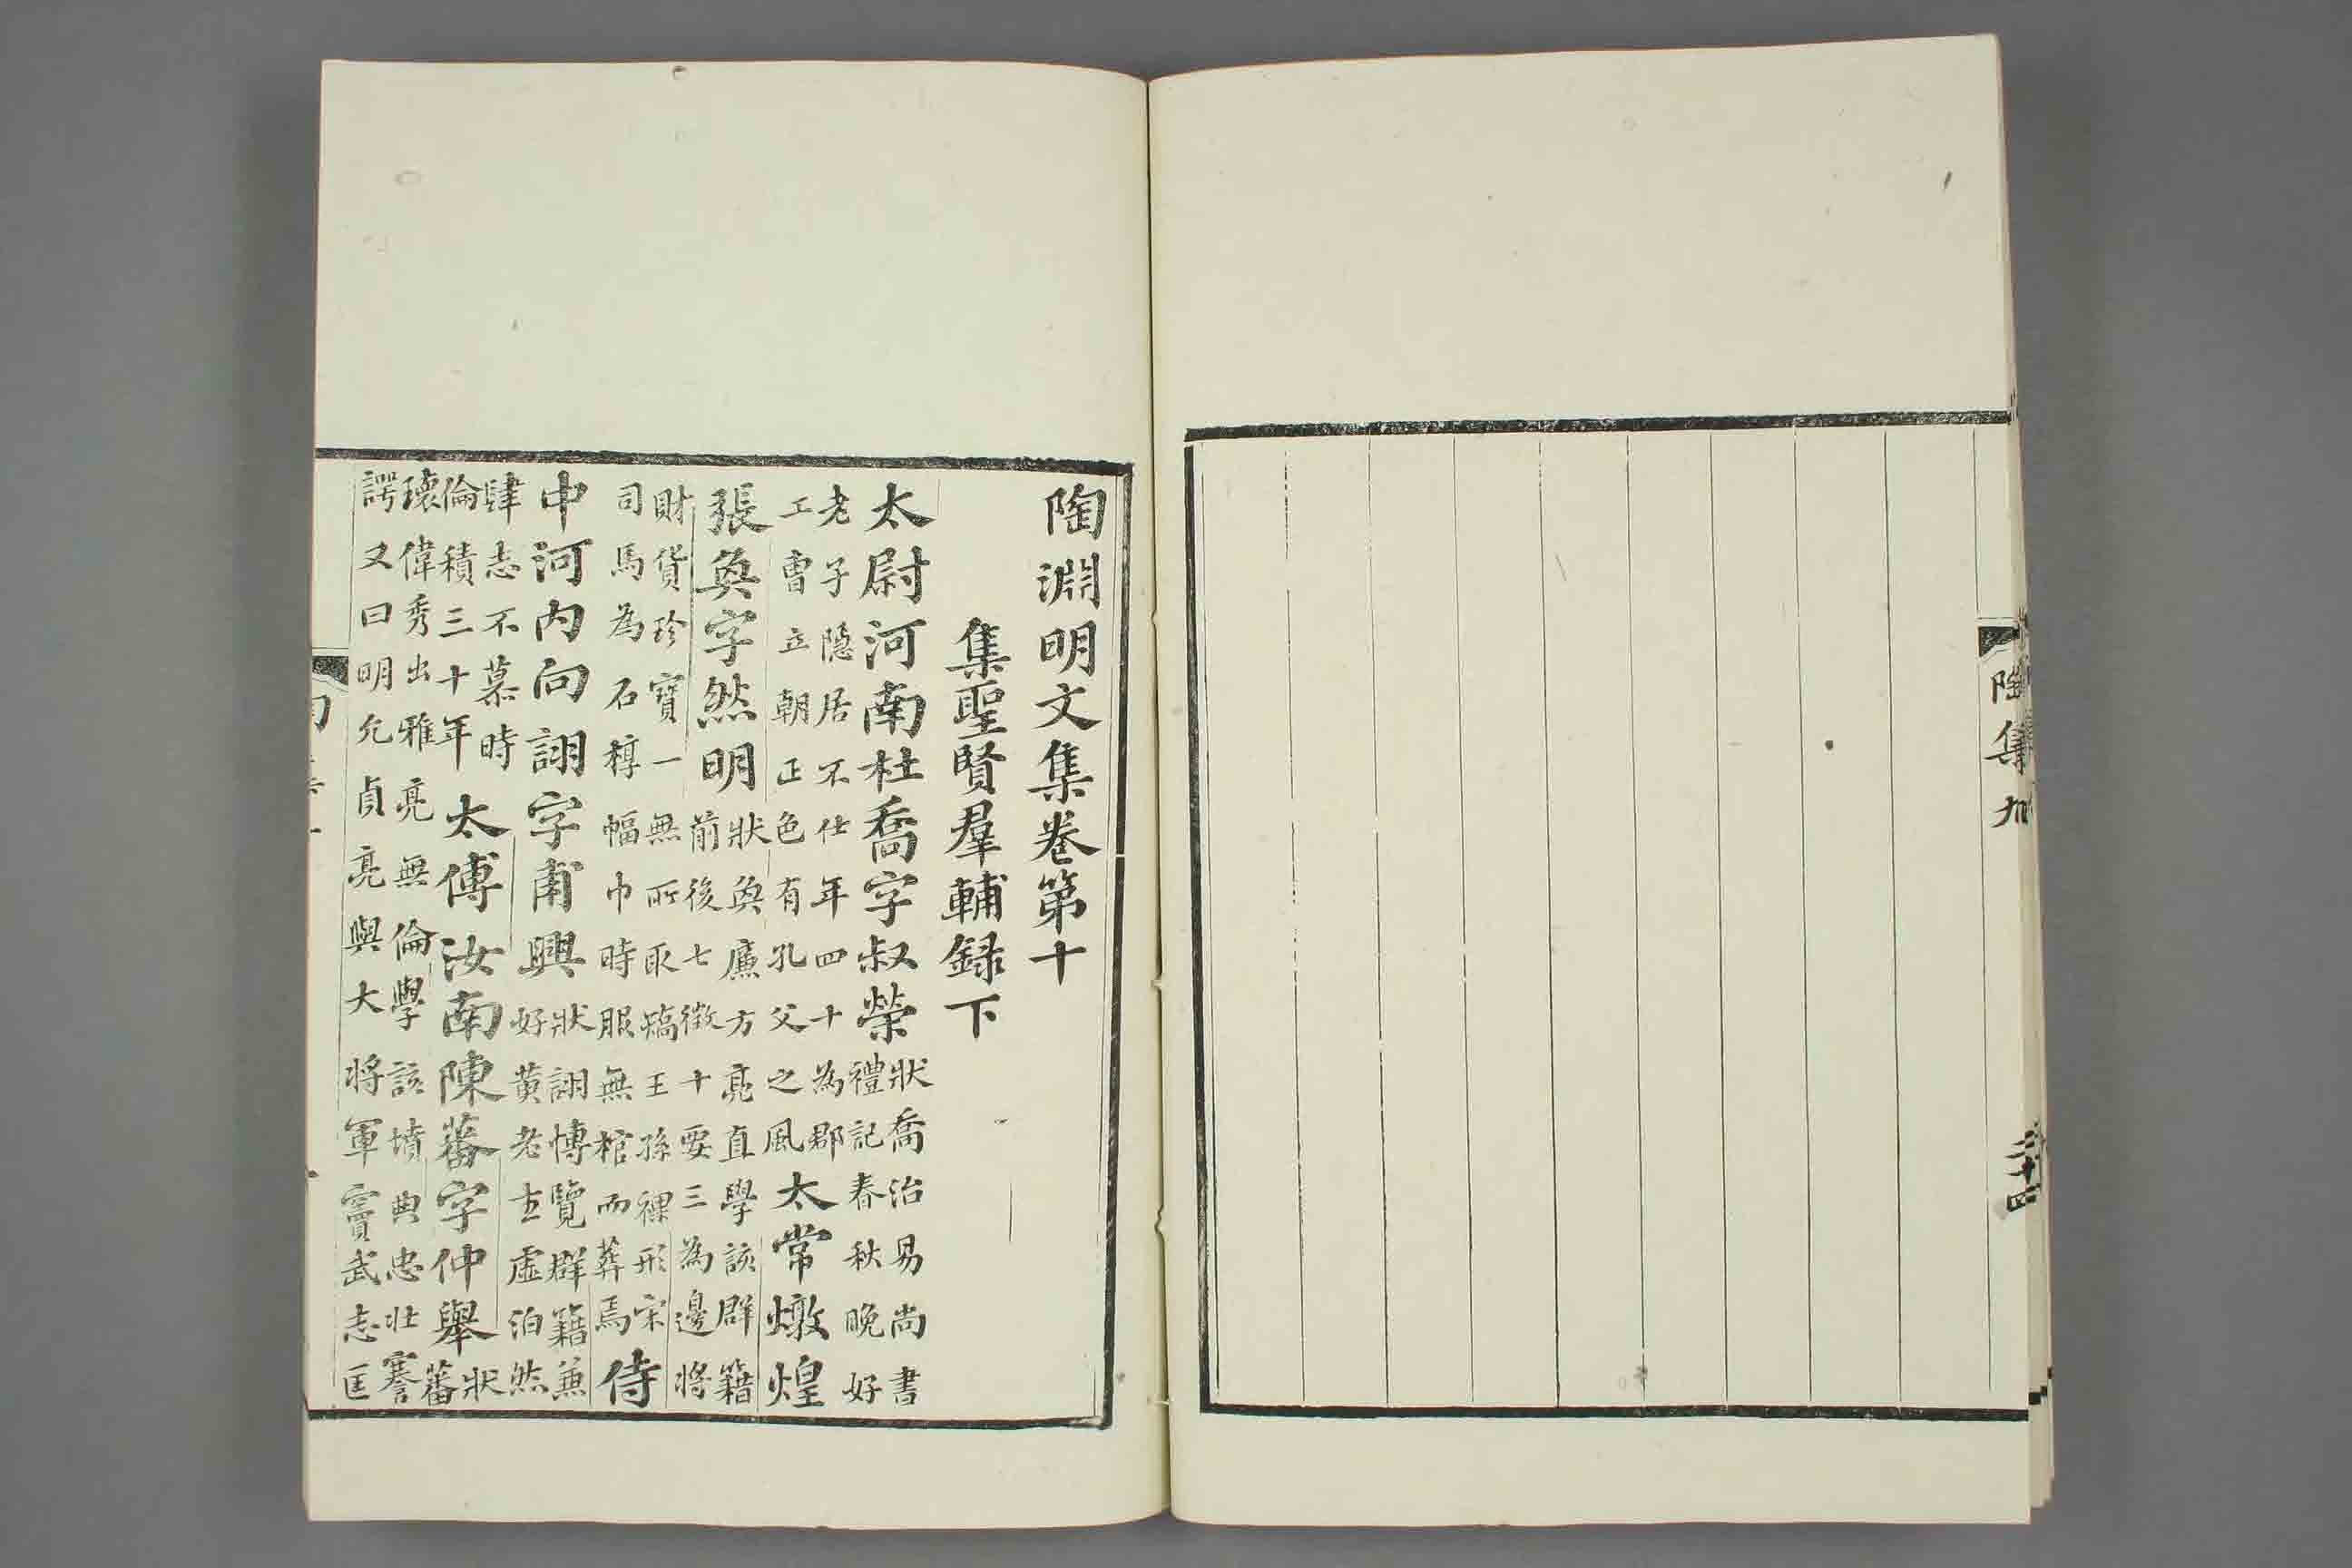 陶集九
三十四
陶淵明文集卷第十
集聖賢羣輔録下
太尉河南杜喬字叔榮
狀喬治易尚書
禮記春秋晚好
老子隱居不仕年四十為郡
工曹立朝正色有孔父之風
太常燉煌
張奐字然明
狀奐廉方亮直學該群籍
前後七徵十要三為邊將
財貨珍寶一無所取矯王孫裸形宋
司馬為石椁幅巾時服無棺而葬焉
侍
中河内向詡字甫興
狀詡博覽群籍兼
好黄老玄虚泊然
肆志不慕時
倫積三十年
太傅汝南陳蕃字仲舉
狀
蕃
瓌偉秀出雅亮無倫學該墳典忠壯謇
諤又曰明允貞亮與大將軍竇武志匡